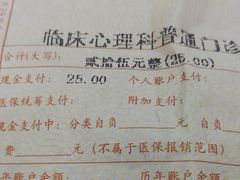 临床心理科普通门诊
合计(大写): 贰拾伍元整(25.00)
现金支付: 25.00 个人账户支付:
医保统筹支付: 附加支付:
现金支付中: 分类自负 元 自负
费 元 (不属于医保报销范围)
当年账户余额: 历年账户余额: